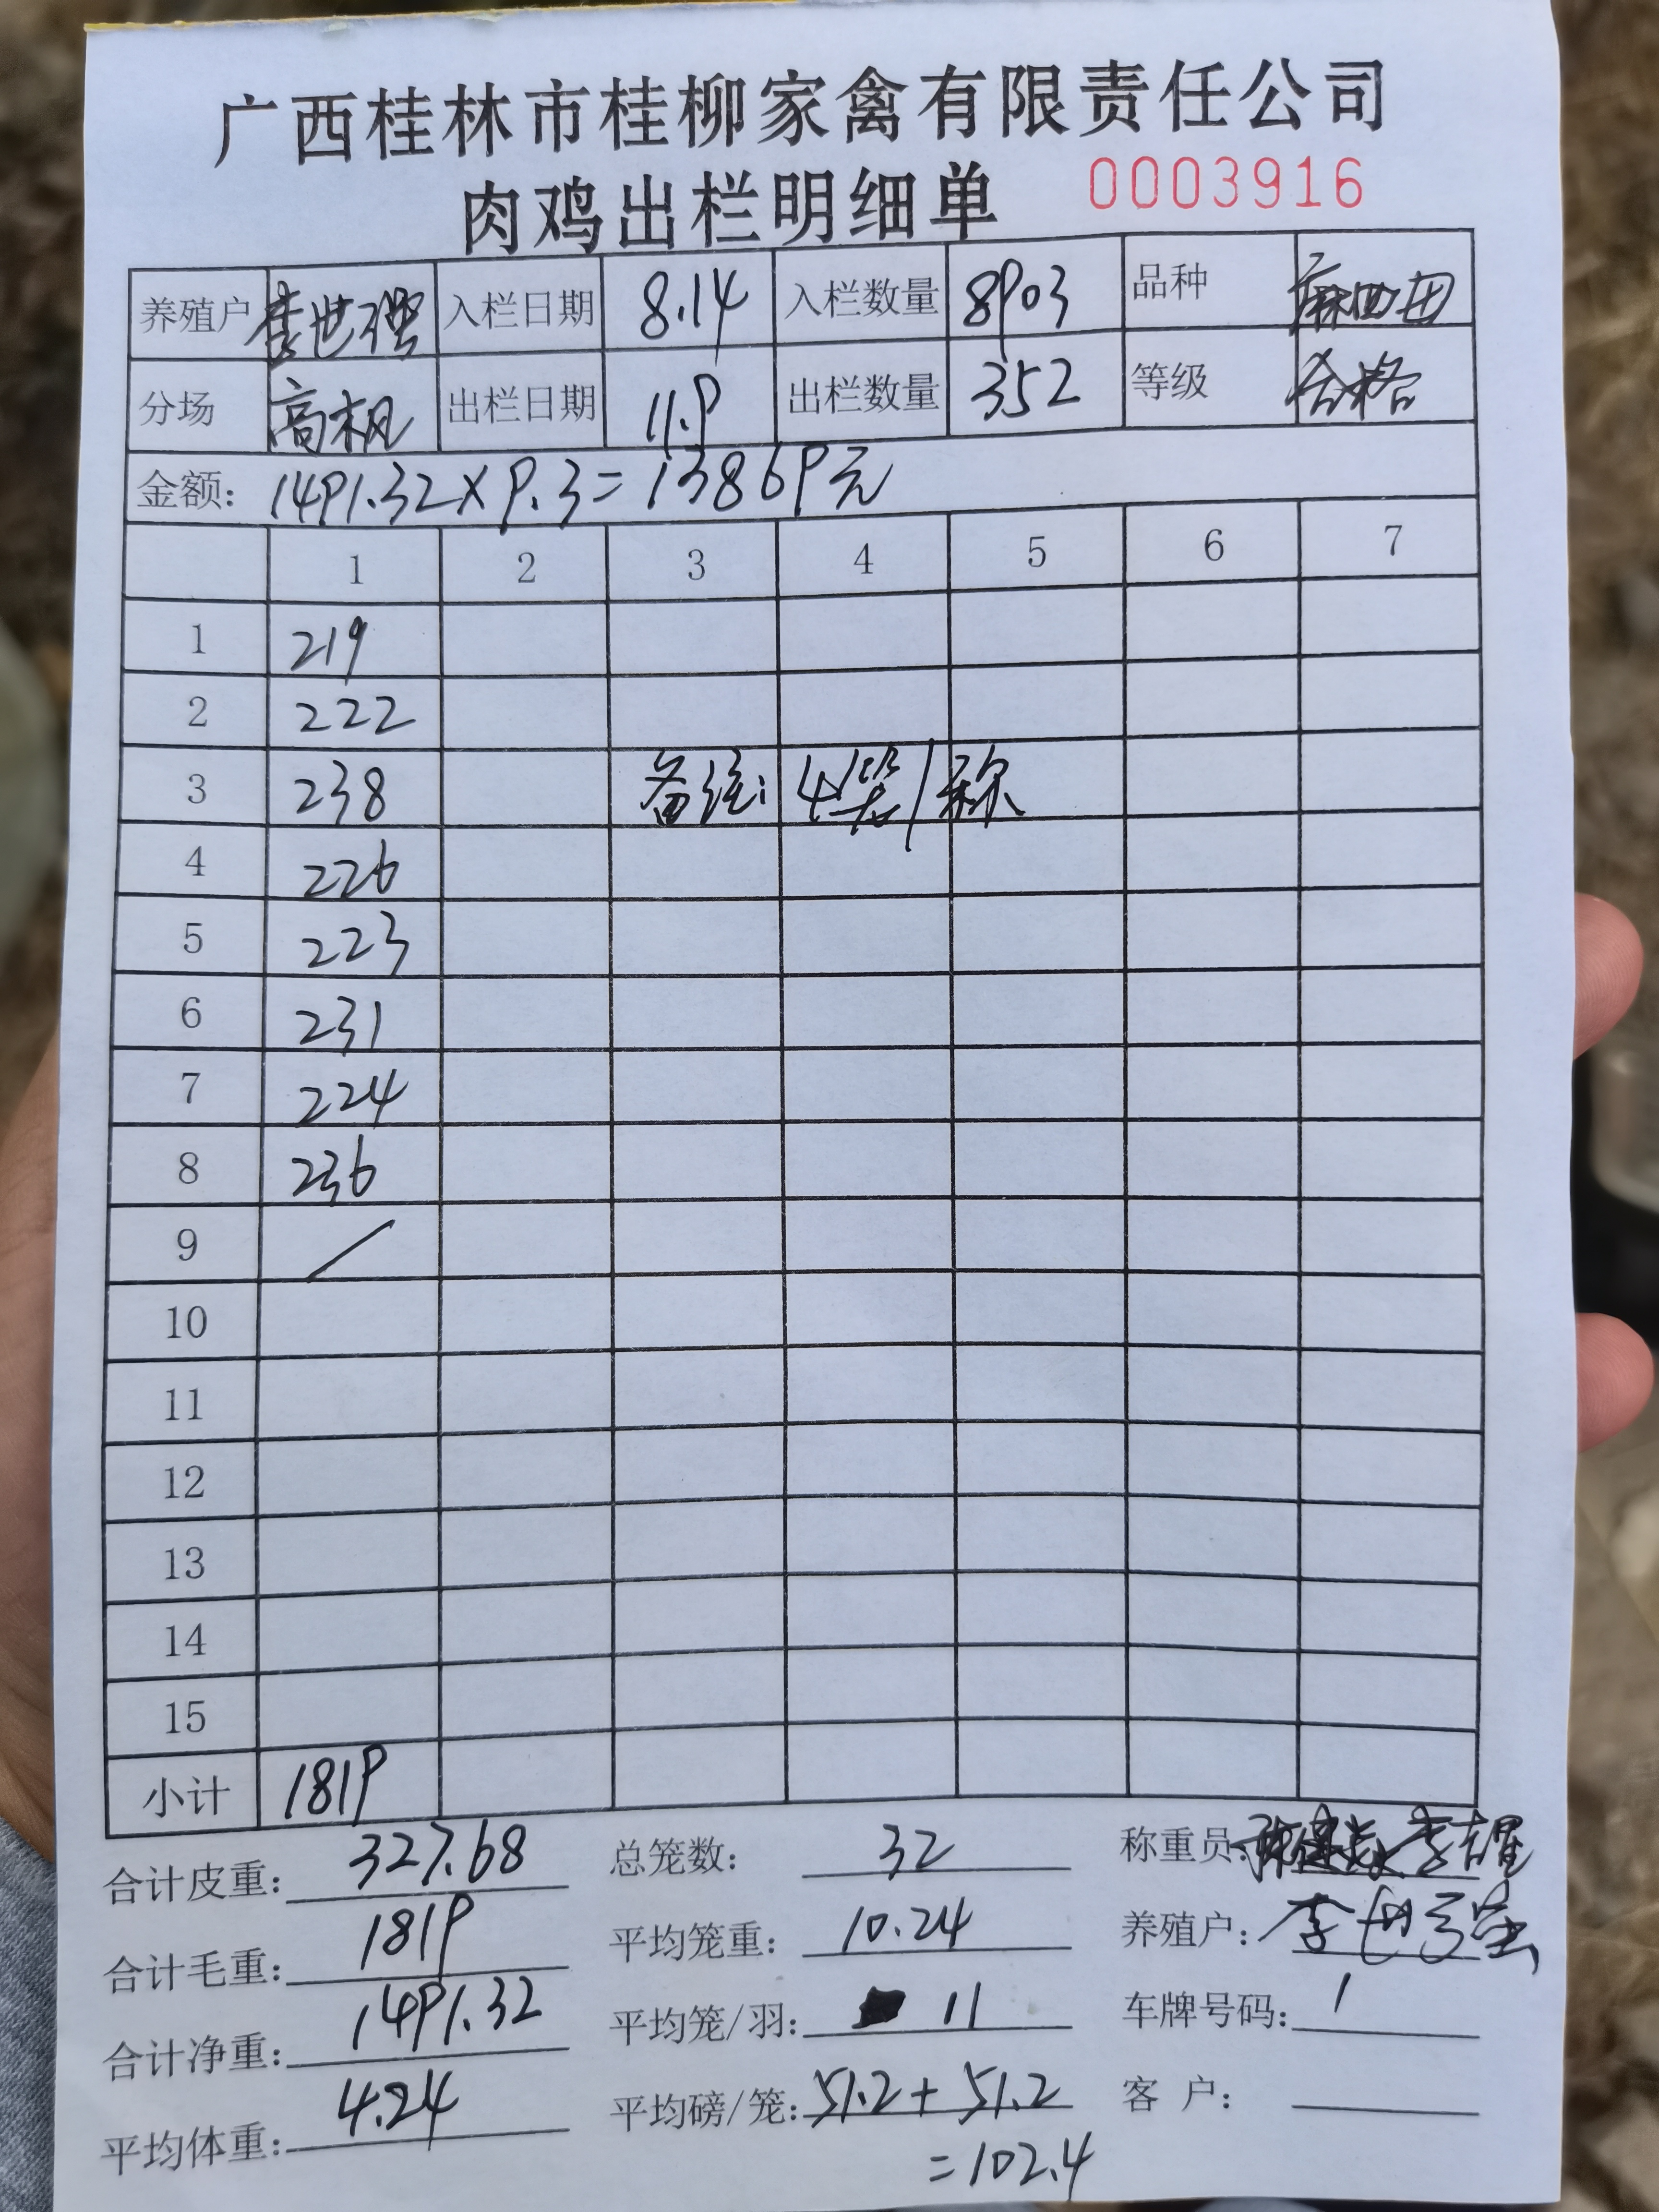 广西桂林市桂柳家禽有限责任公司
肉鸡出栏明细单 0003916
养殖户 李世强 入栏日期 8.14 入栏数量 8903 品种
分场 高枧 出栏日期 11.9 出栏数量 352 等级 合格
金额: 1491.32×9.3=13869元
1 2 3 4 5 6 7
1 219
2 222
3 238 备注: 4笼/称
4 226
5 223
6 231
7 224
8 236
9 /
10
11
12
13
14
15
小计 1819
合计皮重: 327.68 总笼数: 32 称重员:
合计毛重: 1819 平均笼重: 10.24 养殖户: 李世强
合计净重: 1491.32 平均笼/羽: 11 车牌号码: 1
平均体重: 4.24 平均磅/笼: 51.2+51.2 客 户:
=102.4